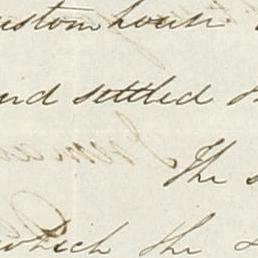 customhouse
and settled
The
which the